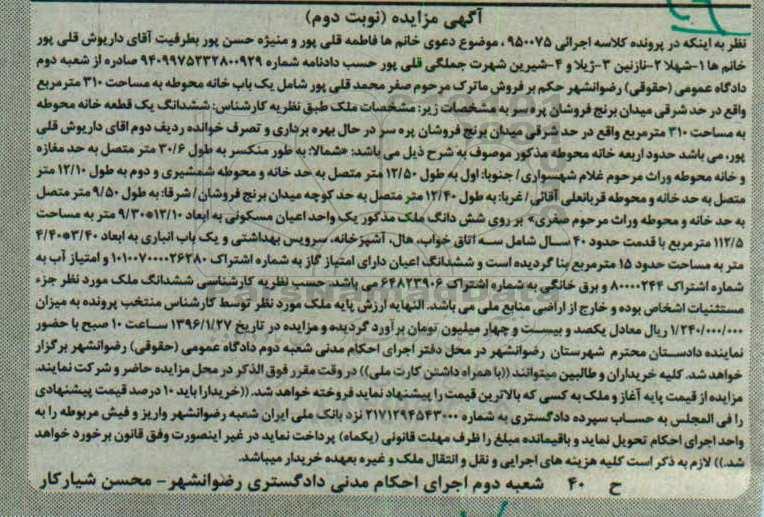 آگهی مزایده (نوبت دوم)
نظر به اینکه در پرونده کلاسه اجرائی ۹۵۰۰۷۵ ، موضوع دعوی خانم ها فاطمه قلی پور و منیژه حسن پور بطرفیت آقای داریوش قلی پور
خانم ها ۱-شهلا ۲-نازنین ۳-ژیلا و ۴-شیرین شهرت جملگی قلی پور حسب دادنامه شماره ۹۴۰۹۹۷۵۲۳۲۸۰۰۹۲۹ صادره از شعبه دوم
دادگاه عمومی (حقوقی) رضوانشهر حکم بر فروش ماترک مرحوم صفر محمد قلی پور شامل یک باب خانه محوطه به مساحت ۳۱۰ مترمربع
واقع در حد شرقی میدان برنج فروشان پره سر به مشخصات زیر: مشخصات ملک طبق نظریه کارشناس: ششدانگ یک قطعه خانه محوطه
به مساحت ۳۱۰ مترمربع واقع در حد شرقی میدان برنج فروشان پره سر در حال بهره برداری و تصرف خوانده ردیف دوم اقای داریوش قلی
پور، می باشد حدود اربعه خانه محوطه مذکور موصوف به شرح ذیل می باشد: «شمالا: به طور منکسر به طول ۳۰/۶ متر متصل به حد مغازه
و خانه محوطه وراث مرحوم غلام شهسواری/ جنوبا: اول به طول ۱۲/۵۰ متر متصل به حد خانه و محوطه شمشیری و دوم به طول ۱۲/۱۰ متر
متصل به حد خانه و محوطه قربانعلی آقائی/ غربا: به طول ۱۲/۴۰ متر متصل به حد کوچه میدان برنج فروشان/ شرقا: به طول ۹/۵۰ متر متصل
به حد خانه و محوطه وراث مرحوم صفری» بر روی شش دانگ ملک مذکور یک واحد اعیان مسکونی به ابعاد ۱۳/۱۰*۹/۳۰ متر به مساحت
۱۱۲/۵ مترمربع با قدمت حدود ۴۰ سال شامل سه اتاق خواب، هال، آشپزخانه، سرویس بهداشتی و یک باب انباری به ابعاد ۳/۴۰*۴/۴۰
متر به مساحت حدود ۱۵ مترمربع بنا گردیده است و ششدانگ اعیان دارای امتیاز گاز به شماره اشتراک ۱۰۱۰۰۷۰۰۰۰۲۶۲۸۰ و امتیاز آب به
شماره اشتراک ۸۰۰۰۰۲۴۴ و برق خانگی به شماره اشتراک ۶۴۸۲۳۹۰۶ می باشد. حسب نظریه کارشناسی ششدانگ ملک مورد نظر جزء
مستثنیات اشخاص بوده و خارج از اراضی منابع ملی می باشد. النهایه ارزش پایه ملک مورد نظر توسط کارشناس منتخب پرونده به میزان
۱/۲۴۰/۰۰۰/۰۰۰ ریال معادل یکصد و بیست و چهار میلیون تومان برآورد گردیده و مزایده در تاریخ ۱۳۹۶/۱/۲۷ ساعت ۱۰ صبح با حضور
نماینده دادستان محترم شهرستان رضوانشهر در محل دفتر اجرای احکام مدنی شعبه دوم دادگاه عمومی (حقوقی) رضوانشهر برگزار
خواهد شد. کلیه خریداران و طالبین میتوانند ((با همراه داشتن کارت ملی)) در وقت مقرر فوق الذکر در محل مزایده حاضر و شرکت نمایند.
مزایده از قیمت پایه آغاز و ملک به کسی که بالاترین قیمت را پیشنهاد نماید فروخته خواهد شد. ((خریدار باید ۱۰ درصد قیمت پیشنهادی
را فی المجلس به حساب سپرده دادگستری به شماره ۲۱۷۱۲۹۴۵۴۳۰۰۰ نزد بانک ملی ایران شعبه رضوانشهر واریز و فیش مربوطه را به
واحد اجرای احکام تحویل نماید و باقیمانده مبلغ را ظرف مهلت قانونی (یکماه) پرداخت نماید در غیر اینصورت وفق قانون برخورد خواهد
شد.)) لازم به ذکر است کلیه هزینه های اجرایی و نقل و انتقال ملک و غیره بعهده خریدار میباشد.
ح ۴۰ شعبه دوم اجرای احکام مدنی دادگستری رضوانشهر - محسن شیارکار